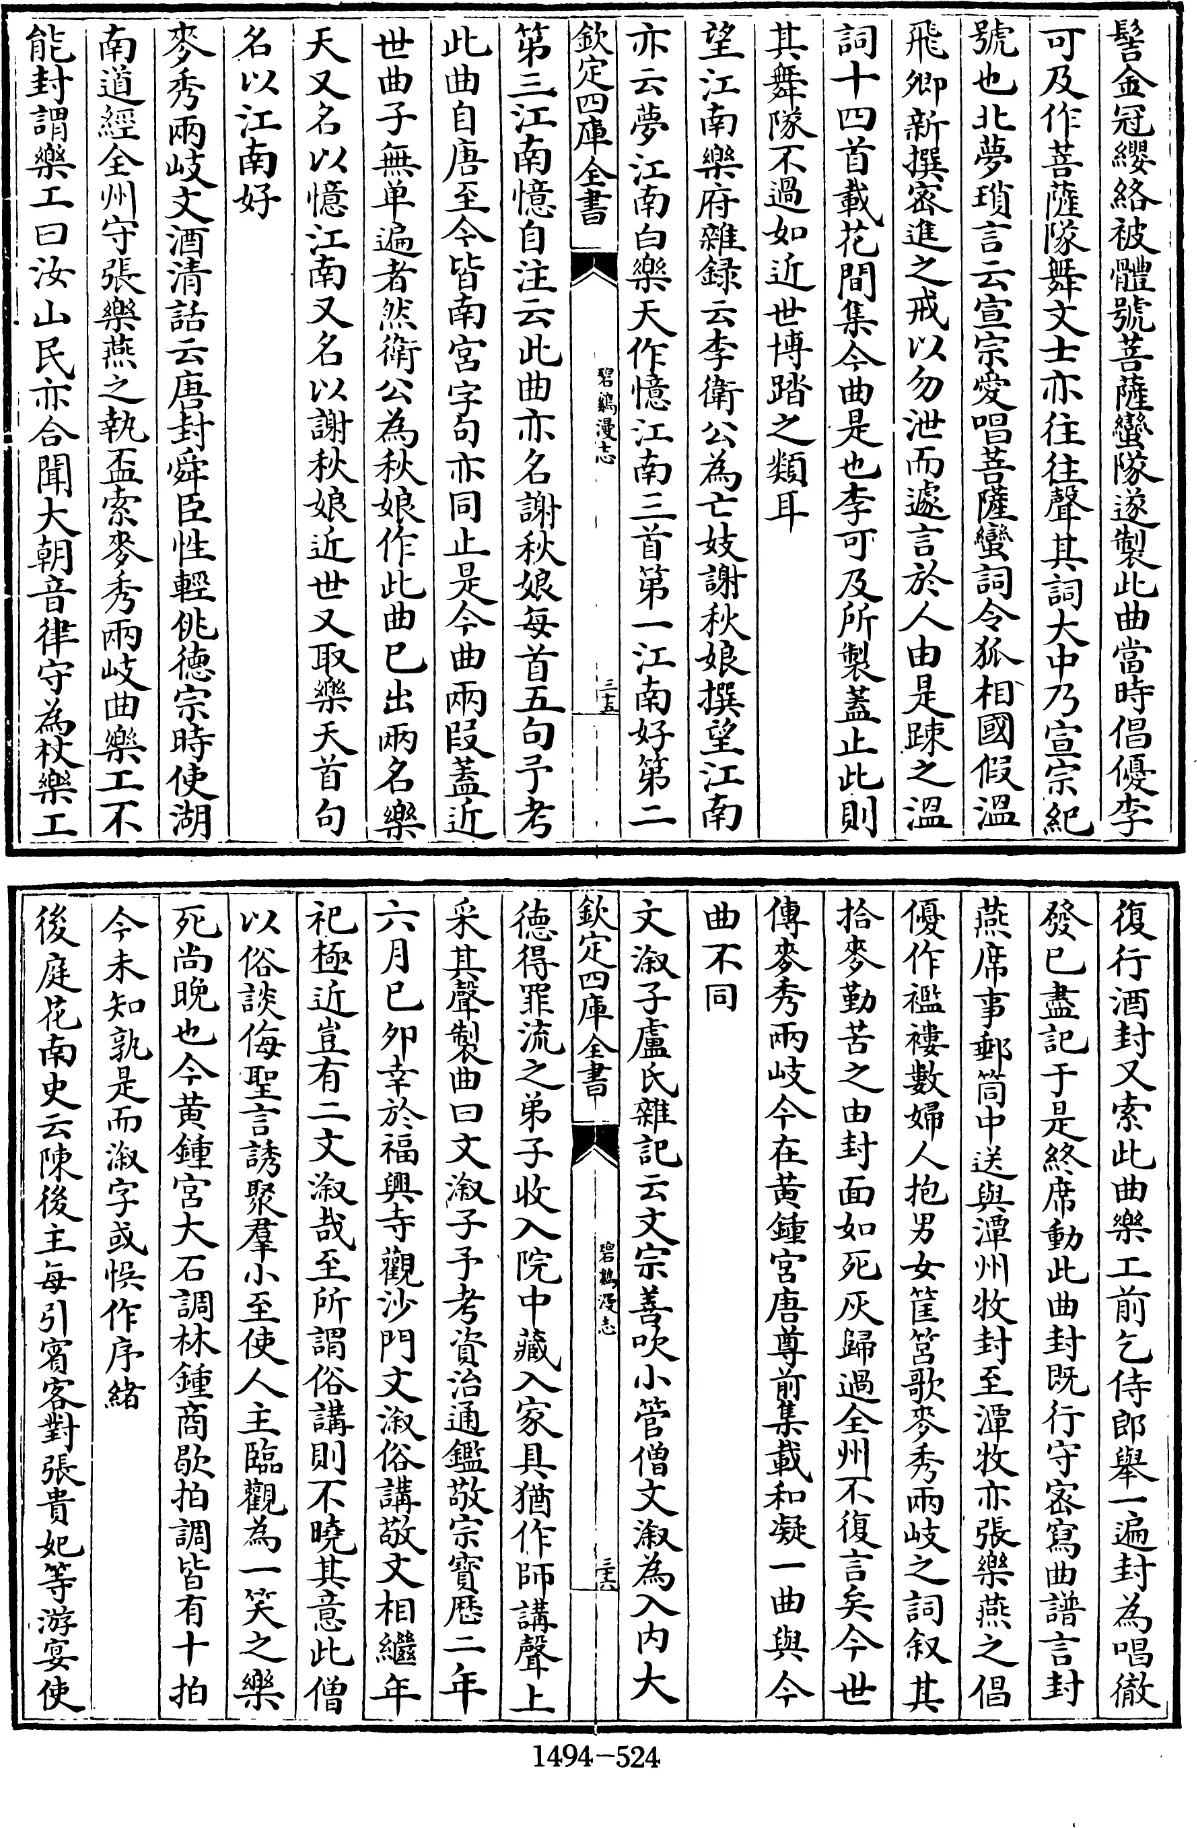 髻金冠纓絡被體號菩薩蠻隊遂製此曲當時倡優李
可及作菩薩隊舞文士亦往往聲其詞大中乃宣宗紀
號也北夢瑣言云宣宗愛唱菩薩蠻詞令狐相國假溫
飛卿新撰密進之戒以勿泄而遽言於人由是踈之溫
詞十四首載花間集今曲是也李可及所製蓋止此則
其舞隊不過如近世博踏之類耳
望江南樂府雜録云李衛公為亡妓謝秋娘撰望江南
亦云夢江南白樂天作憶江南三首第一江南好第二
欽定四庫全書
碧鷄漫志
三十五
第三江南憶自注云此曲亦名謝秋娘每首五句予考
此曲自唐至今皆南宮字句亦同止是今曲兩叚蓋近
世曲子無单遍者然衛公為秋娘作此曲已出兩名樂
天又名以憶江南又名以謝秋娘近世又取樂天首句
名以江南好
麥秀兩岐文酒清話云唐封舜臣性輕佻德宗時使湖
南道經全州守張樂燕之執盃索麥秀兩岐曲樂工不
能封謂樂工曰汝山民亦合聞大朝音律守為杖樂工
復行酒封又索此曲樂工前乞侍郎舉一遍封為唱徹
發已盡記于是終席動此曲封既行守密寫曲譜言封
燕席事郵筒中送與潭州牧封至潭牧亦張樂燕之倡
優作襤褸數婦人抱男女筐筥歌麥秀兩岐之詞叙其
拾麥勤苦之由封面如死灰歸過全州不復言矣今世
傳麥秀兩岐今在黄鍾宮唐尊前集載和凝一曲與今
曲不同
文溆子盧氏雜記云文宗善吹小管僧文溆為入内大
欽定四庫全書
碧鷄漫志
三十六
德得罪流之弟子收入院中藏入家具猶作師講聲上
采其聲製曲曰文溆子予考資治通鑑敬宗寳歴二年
六月已夘幸於福興寺觀沙門文溆俗講敬文相繼年
祀極近豈有二文溆哉至所謂俗講則不曉其意此僧
以俗談侮聖言誘聚羣小至使人主臨觀為一笑之樂
死尚晚也今黄鍾宮大石調林鍾商歇拍調皆有十拍
今未知孰是而溆字或悮作序緒
後庭花南史云陳後主每引賓客對張貴妃等游宴使
1494-524